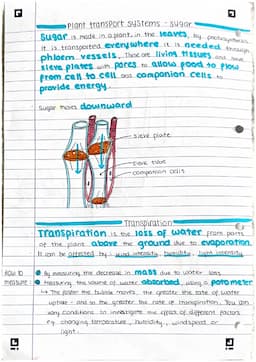 Plant transport systems - sugar
Sugar is made in a plant, in the leaves, by photosynthesis
It is transported everywhere it is needed through
phloem vessels. These are living tissues and have
sieve plates with pores to allow food to flow
from cell to cell and companion cells to
provide energy.
Sugar moves downward
sieve plate
sieve tube
companion cells
Transpiration
Transpiration is the loss of water from parts
of the plant above the ground due to evaporation.
It can be affected by: wind intensity, humidity, light intensity
How to
measure:
By measuring the decrease in mass due to water loss
Measuring the volume of water absorbed, using a potometer
↳ The faster the bubble moves, the greater the rate of water
uptake - and so the greater the rate of transpiration. You can
vary conditions to investigate the effect of different factors
e.g. changing temperature, humidity, windspeed or
light.